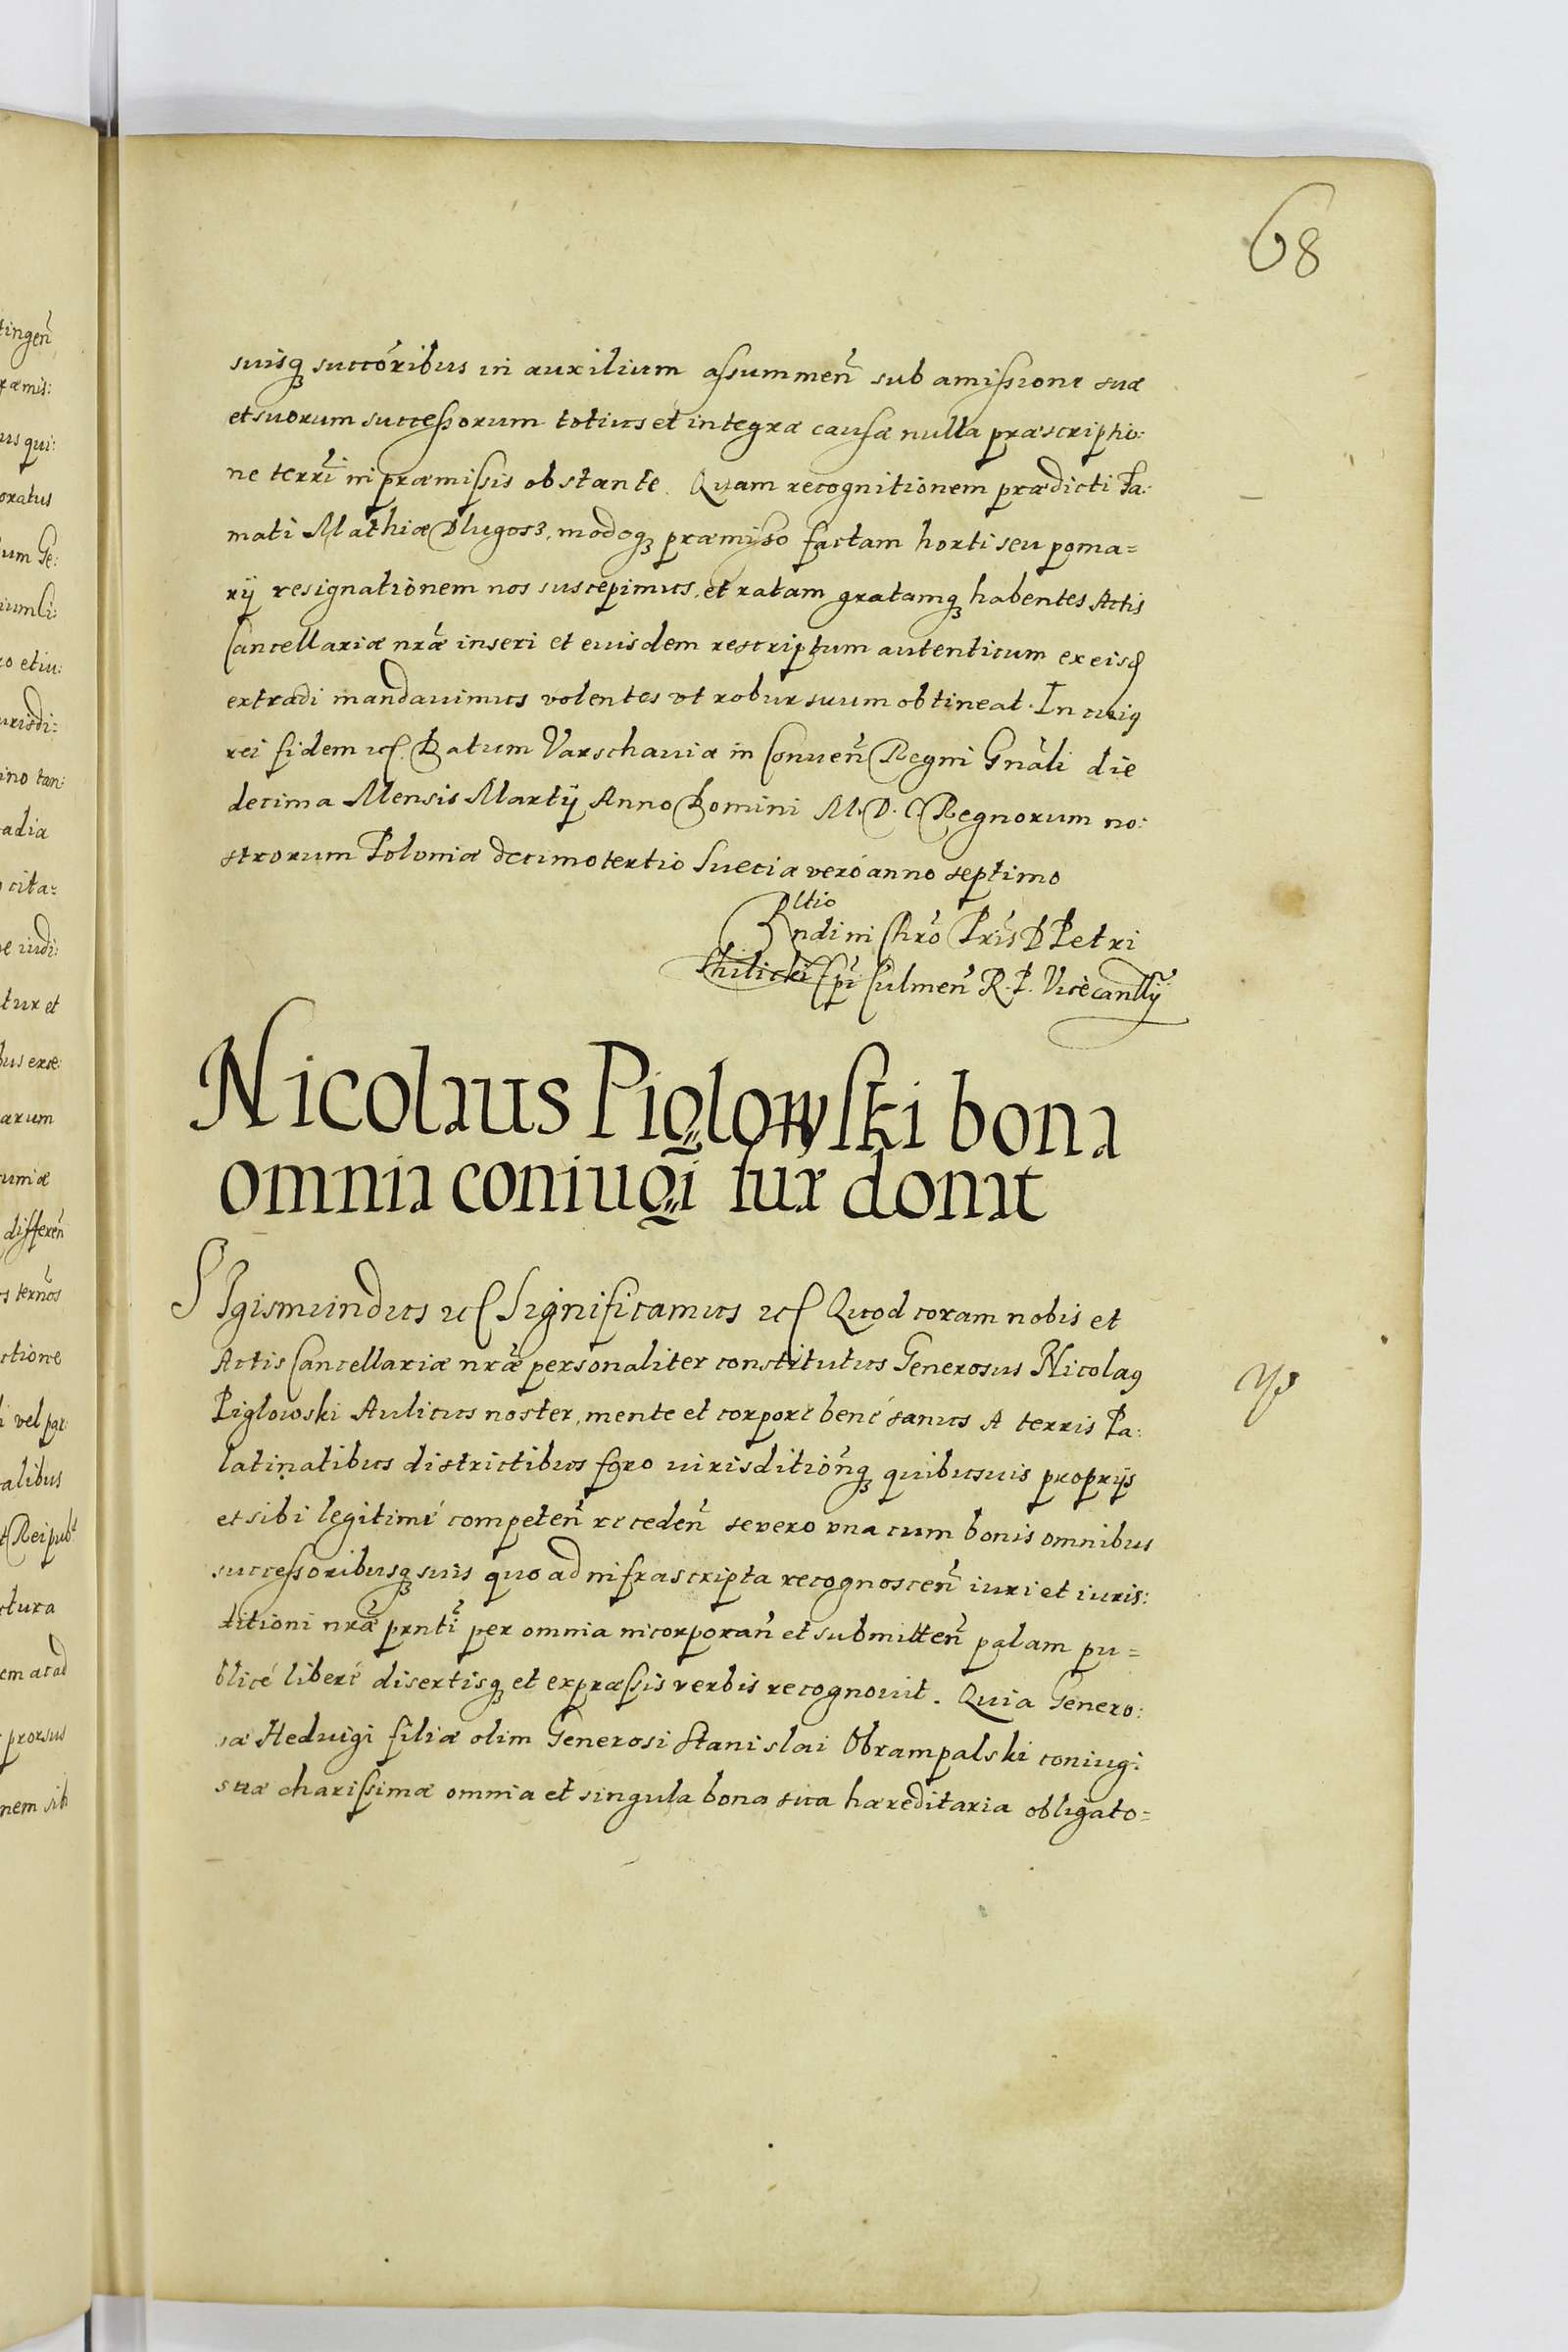 68
suisq succõribus in auxilium assummeñ sub amissione suæ
et suorum successorum totius et integræ causæ nulla præscriptio:
ne terrĩ in præmissis obstante. Quam recognitionem prædicti Fa:
mati Mathiæ Dlugosz, modoq præmisso factam horti seu poma=
rij resignationem nos suscepimus, et ratam gratamq habentes Actis
Cancellariæ nrãe inseri et euisdem rescriptum autenticum ex eisd
extradi mandauimus volentes vt robur suum obtineat. In cuiq
rei fidem etc. Datum Varschauiæ in Conueñ Regni Gnãli die
decima Mensis Martij Anno Domini M.D.C. Regnorum no:
strorum Poloniæ decimotertio Sueciæ veró anno septimo
Rltio
Rndi in Chrõ Pris D Petri
Tilicki Epi Culmeñ R. P. Vicecanllÿ
Nicolaus Piglowski bona
omnia coniugi suæ donat
SIgismundus etc Significamus etc Quod coram nobis et
Actis Cancellariæ nrãe personaliter constitutus Generosus Nicolaq
Piglowski Aulicus noster, mente et corpore bené sanus A terris Pa:
latinatibus districtibus foro iurisditiõnq quibusuis proprijs
et sibi legitimé competeñ recedeñ se vero vna cum bonis omnibus
successoribusq suis quo ad infrascripta recognosceñ iuri et iuris:
ditioni nrãe prntĩ per omnia incorporañ et submitteñ palam pu=
blicé liberé disertisq et expræssis verbis recognouit. Quia Genero:
sæ Heduigi filiæ olim Generosi Stanislai Obrampalski coniugi
suæ charissimæ omnia et singula bona sua hæreditaria obligato=